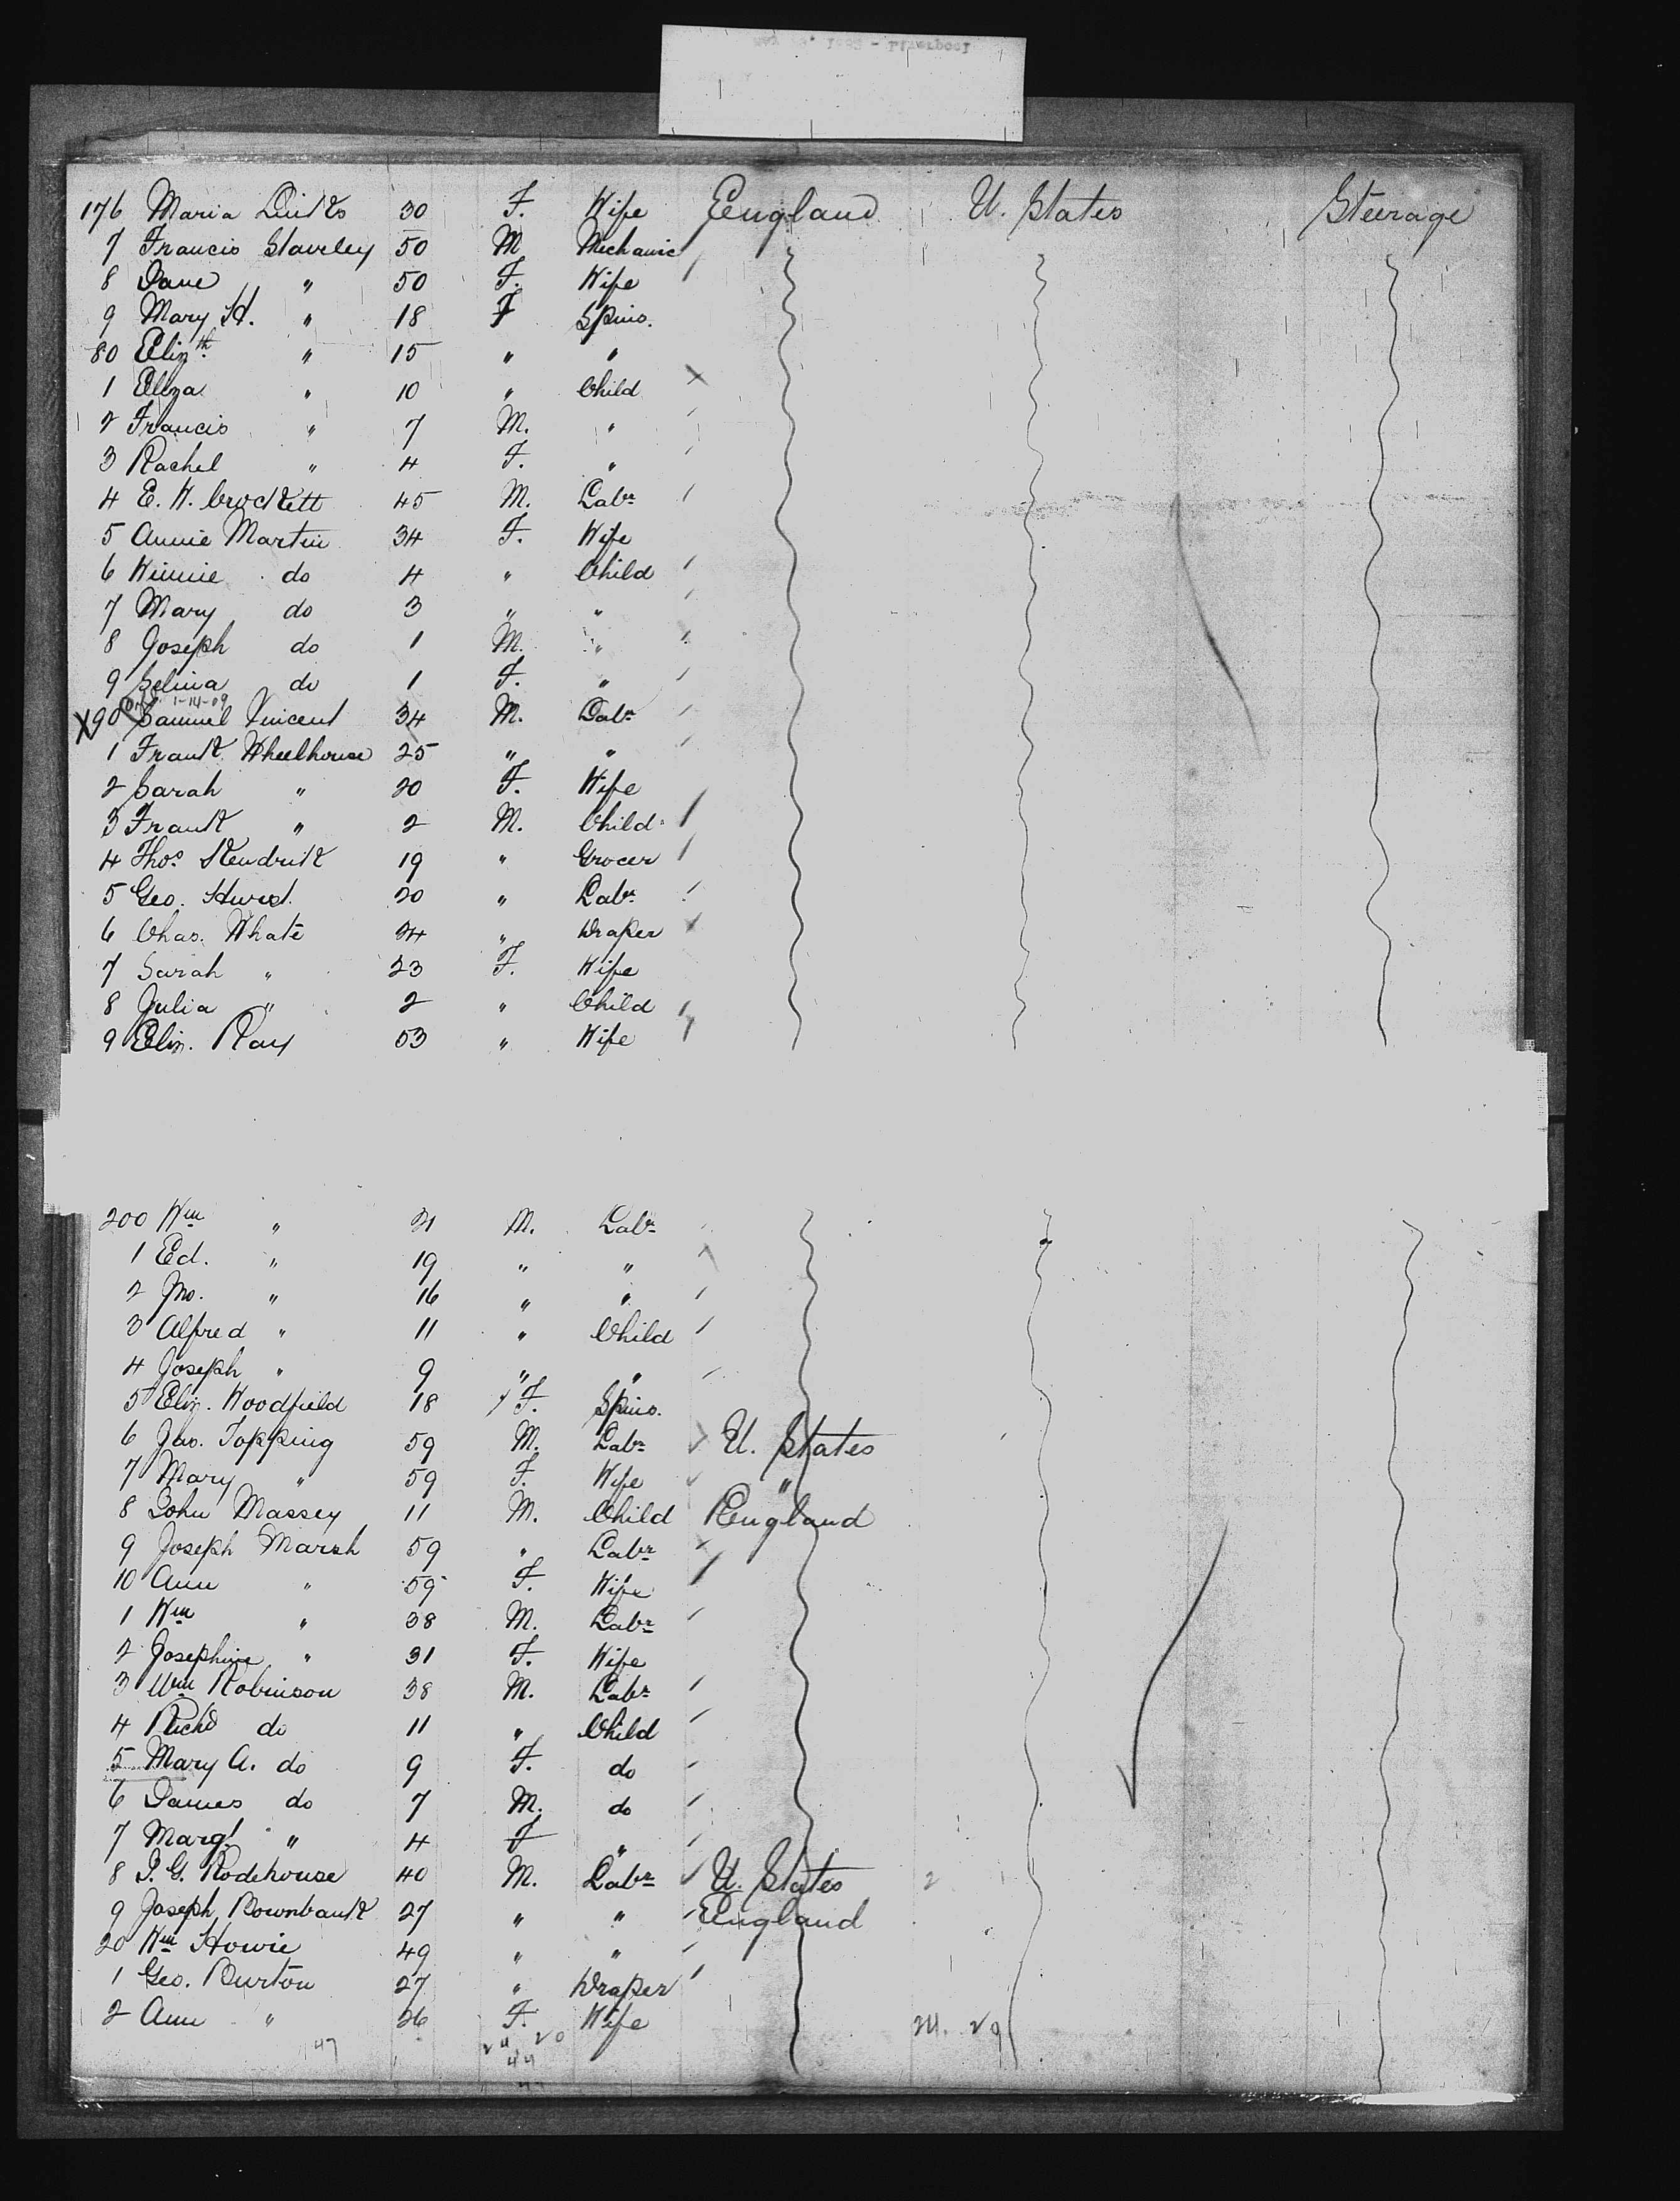 176 Maria Quirks 30 F. Wife England U. States Steerage
7 Francis Staveley 50 M Mechanic
8 Jane " 50 F. Wife
9 Mary H. " 18 F Spins.
80 Elizth " 15 " "
1 Eliza " 10 " Child
2 Francis " 7 M. "
3 Rachel " 4 F. "
4 E. W. Crockett 45 M. Labr
5 Annie Martin 34 F. Wife
6 Winnie do 4 " Child
7 Mary do 3 " "
8 Joseph do 1 M. "
9 Selina do 1 F. "
1-14-09
X90 Samuel Vincent 34 M. Labr
1 Frank Wheelhouse 25 " "
2 Sarah " 20 F. Wife
3 Frank " 2 M. Child
4 Thos Kendrick 19 " Grocer
5 Geo. Hurd 20 " Labr
6 Chas. Whate 24 " Draper
7 Sarah " 23 F. Wife
8 Julia " 2 " Child
9 Eliz. Ray 53 " Wife
200 Wm " 21 M. Labr
1 Ed. " 19 " "
2 Jno. " 16 " "
3 Alfred " 11 " Child
4 Joseph " 9 " "
5 Eliz. Woodfield 18 F. Spins.
6 Jas. Topping 59 M. Labr U. States
7 Mary " 59 F. Wife "
8 John Massey 11 M. Child England
9 Joseph Marsh 59 " Labr
10 Ann " 59 F. Wife
1 Wm " 38 M. Labr
2 Josephine " 31 F. Wife
3 Wm Robinson 38 M. Labr
4 Richd do 11 " Child
5 Mary A. do 9 F. do
6 James do 7 M. do
7 Margt " 4 F "
8 J. G. Rodehouse 40 M. Labr U. States 2
9 Joseph Rownbank 27 " " England
20 Wm Howie 49 " "
1 Geo. Burton 27 " Draper
2 Ann " 26 F. Wife
47 24 20
44